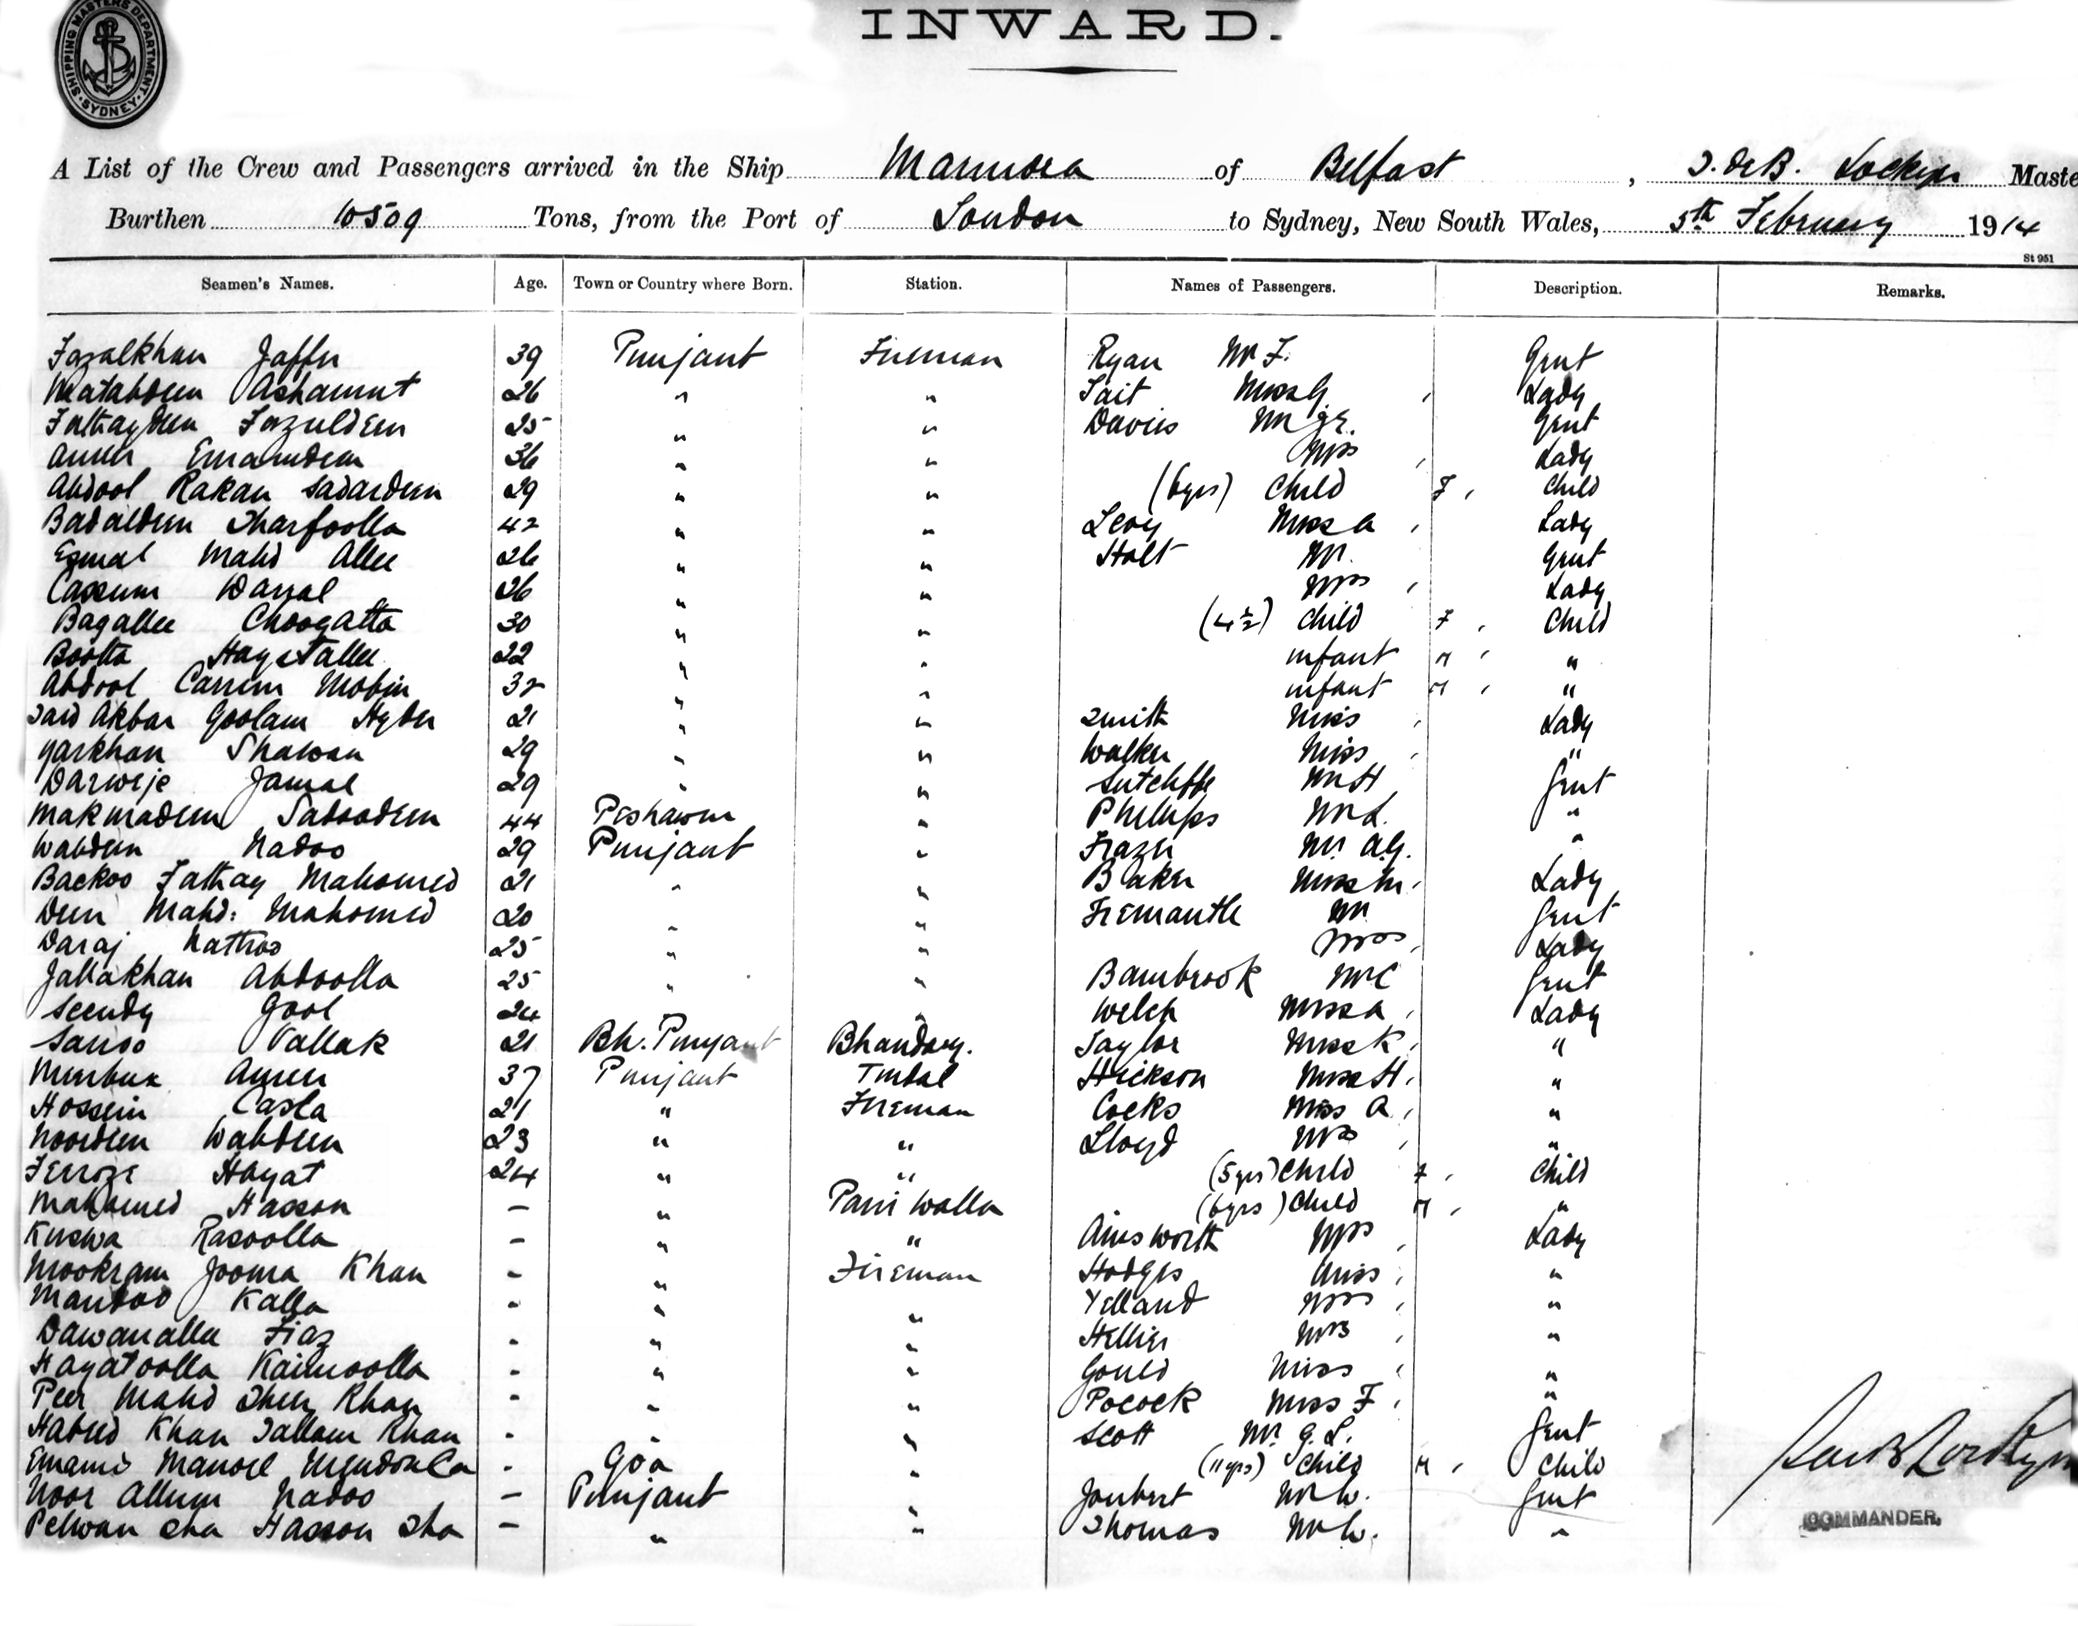 SHIPPING MASTERS DEPARTMENT · SYDNEY ·
INWARD.
A List of the Crew and Passengers arrived in the Ship Marmora of Belfast, Master
Burthen 10509 Tons, from the Port of London to Sydney, New South Wales, 5th February 1914
St 951
Seamen's Names. Age. Town or Country where Born. Station. Names of Passengers. Description. Remarks.
Fazalkhan Jaffer 39 Punjaut Fireman Ryan Mr F. Gent
Matabdeen Ashamut 26 " " Tait Miss G. Lady
Fattaydeen Fazuldeen 25 " " Davies Mr Gent
Ameer Emamdeen 36 " " Mrs Lady
Abdool Rakan Sadardeen 29 " " (6yrs) Child F Child
Badaldeen Sharfoolla 42 " " Levy Miss A Lady
Esmal Mahd Allee 26 " " Holt Mr. Gent
Cassum 26 " " Mrs Lady
Bagallee Choogatta 30 " " (4½) Child F Child
Bootta Hayatallee 22 " " infant M "
Abdool Carrim Mobin 32 " " infant M "
Said Akbar Goolam Hyder 21 " " Smith Miss Lady
Yarkhan Shawan 29 " " Walker Miss "
Darweje Jamal 29 " " Sutcliffe Mr H Gent
Makmadeen Sadoodeen 44 Peshawur " Phillips Mr L. "
Wabdeen Nadoo 29 Punjaut " Frazer Mr A.G. "
Backoo Fattay Mahomed 21 " " Baker Miss M. Lady
Deen Mahd: Mahomed 20 " " Fremantle Mr Gent
Daraj Nathoo 25 " " Mrs Lady
Jallakhan Abdoolla 25 " " Bambrook Mr C Gent
Seendy Gool 24 " " Welch Miss A Lady
Sanoo Vallak 21 Bh. Punjaut Bhandary. Taylor Miss K. "
Meerbux Ameer 37 Punjaut Tindal Hickson Miss H. "
Hossein Casla 21 " Fireman Cocks Miss A. "
Noordeen Wabdeen 23 " " Lloyd Mrs "
Feroze Hayat 24 " " (5yrs) Child F Child
Mahomed Hasson - " Pani Walla (6yrs) Child M "
Kuswa Rasoolla - " " Ainsworth Mrs Lady
Mookram Jooma Khan - " Fireman Hodges Miss "
Mandoo Kalla - " " Yelland Mrs "
Dawanallee Fiaz - " " Hellier Mrs "
Hayatoolla Kaimoolla - " " Gould Miss "
Peer Mahd Sheer Khan - " " Pocock Miss F "
Habeed Khan Sallam Khan - " " Scott Mr G. L. Gent
Manoel - Goa " (11yrs) Child M Child
Noor Allum Nadoo - Punjaut " Joubert Mr W. Gent
Pelwan Sha Hasson Sha - " " Thomas Mr W. "
COMMANDER.